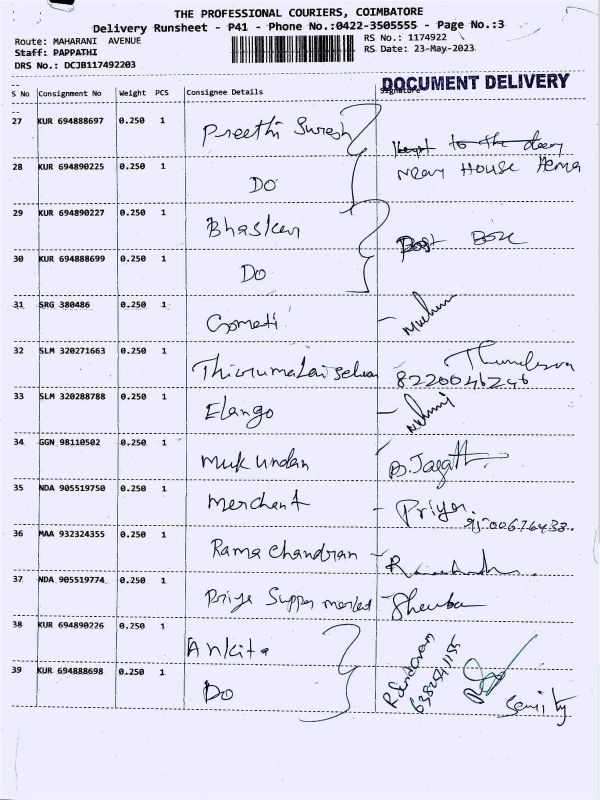 THE PROFESSIONAL COURIERS, COIMBATORE
Delivery Runsheet - P41 - Phone No.:0422-3505555 - Page No.:3
Route: MAHARANI AVENUE
RS No.: 1174922
Staff: PAPPATHI
RS Date: 23-May-2023
DRS No.: DCJB117492203
DOCUMENT DELIVERY
S No Consignment No Weight PCS Consignee Details Signature
27 KUR 694888697 0.250 1 Preethi Suresh
28 KUR 694890225 0.250 1 DO Near House Hema
29 KUR 694890227 0.250 1 Bhasker
30 KUR 694888699 0.250 1 DO Post Box
31 SRG 380486 0.250 1 Gomati
32 SLM 320271663 0.250 1 Thirumalai selvan 8220046246
33 SLM 320288788 0.250 1 Elango
34 GGN 98110502 0.250 1 Mukundan B. Jagatt
35 NDA 905519750 0.250 1 Merchant Priya
36 MAA 932324355 0.250 1 Rama chandran
37 NDA 905519774 0.250 1 Priya Supper market
38 KUR 694890226 0.250 1 Ankita
39 KUR 694888698 0.250 1 Do